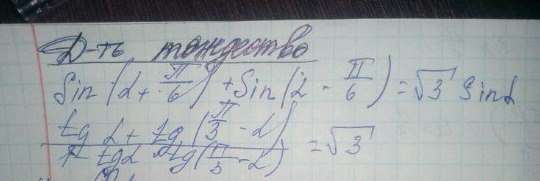 Д-ть тождество
Sin(α + π/6) + Sin(α - π/6) = √3 Sinα
tg α + tg(π/3 - α)
1 - tgα · tg(π/3 - α) = √3